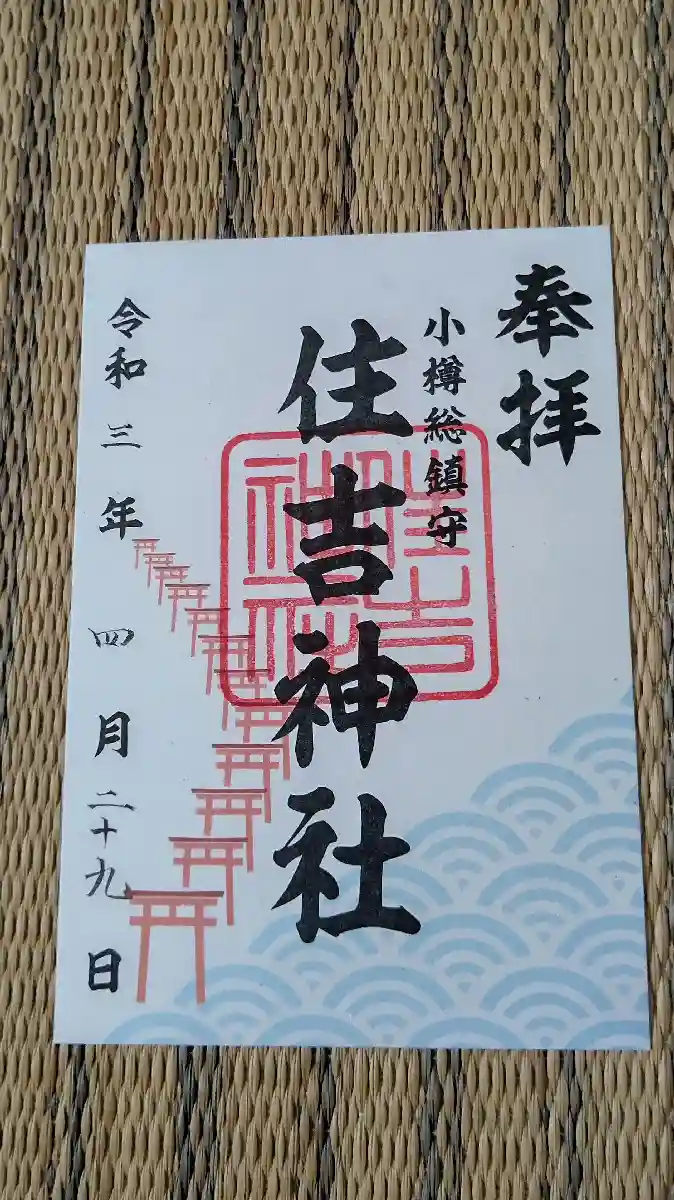 奉拝
小樽総鎮守
住吉神社
住吉神社
令和三年四月二十九日